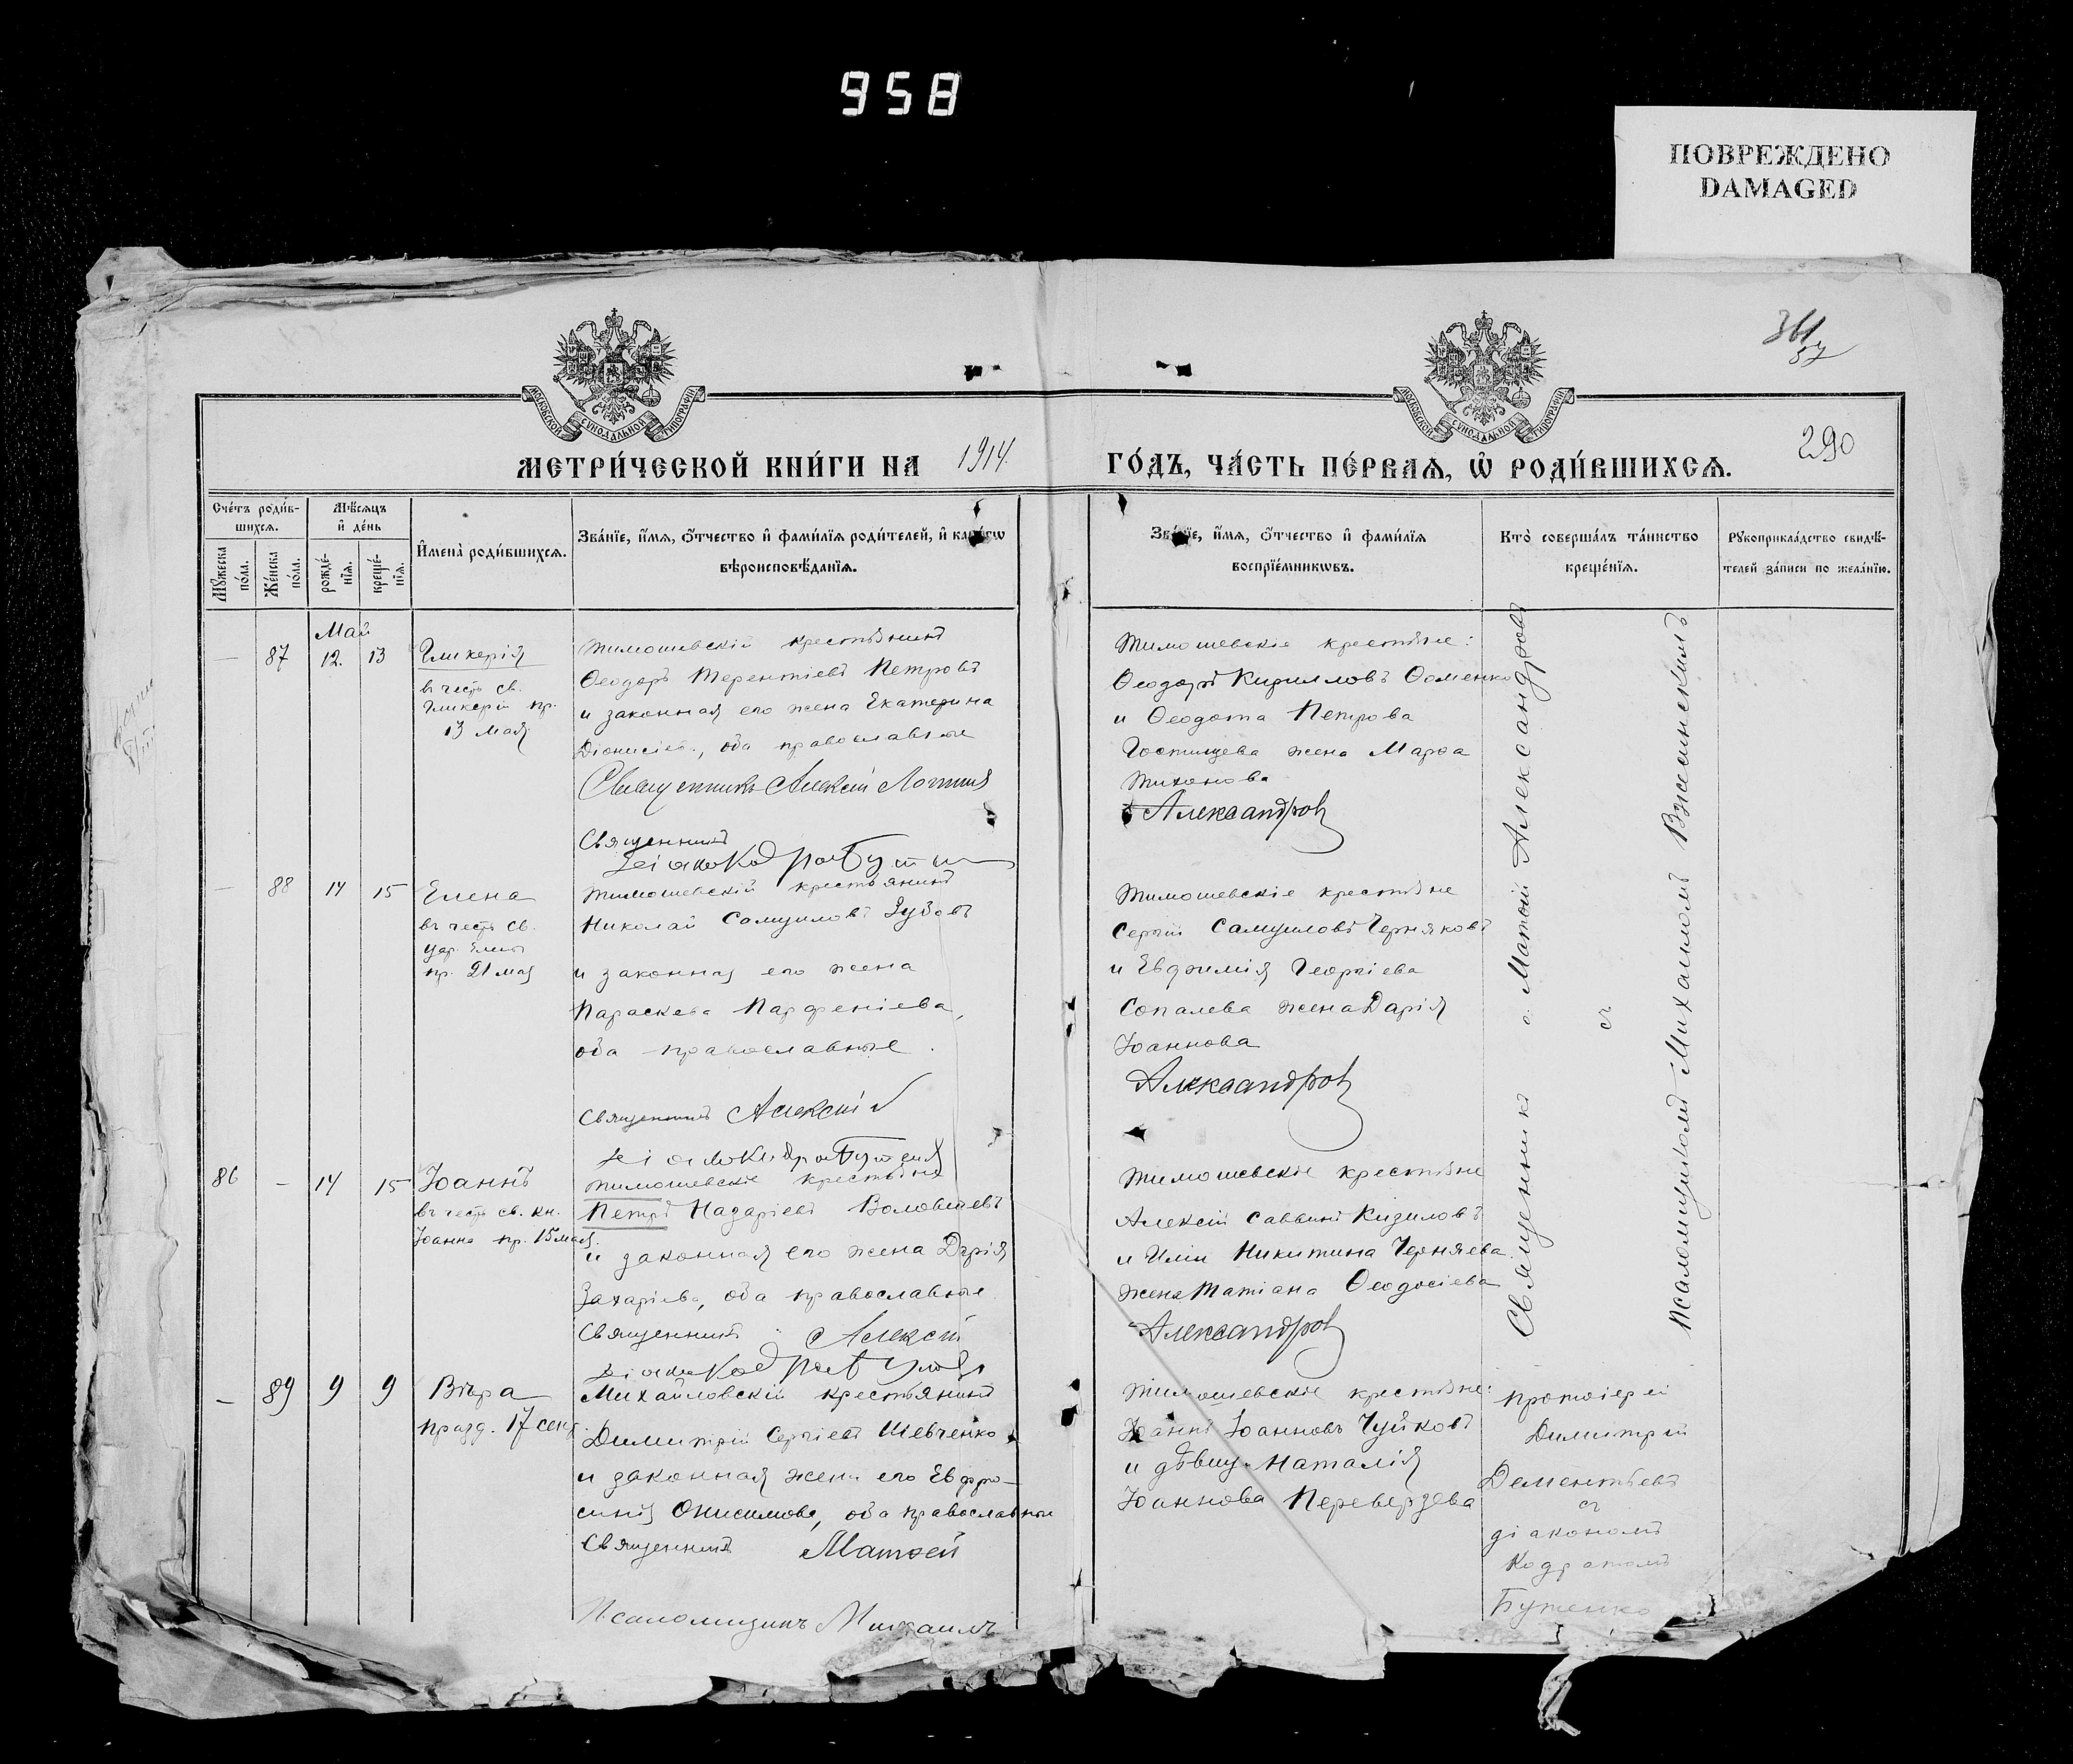 958
ПОВРЕЖДЕНО
DAMAGED
361
57
290
МОСКОВСКОЙ СѴНОДАЛЬНОЙ ТИПОГРАФІИ
МОСКОВСКОЙ СѴНОДАЛЬНОЙ ТИПОГРАФІИ
МЕТРИ́ЧЕСКОЙ КНИ́ГИ НА 1914 ГО́ДЪ, ЧА́СТЬ ПЕ́РВАѦ, Ѡ҆ РОДИ́ВШИХСѦ.
Сче́тъ роди́в-
шихсѧ.
Мꙋ́жеска
по́ла.
Же́нска
по́ла.
Мѣ́сѧцъ
и҆ де́нь
рожде́-
нїѧ.
креще́-
нїѧ.
И҆мена̀ роди́вшихсѧ.
Зва́нїе, и҆́мѧ, ѻ҆́тчество и҆ фами́лїѧ роди́телей, и҆ како́гѡ
вѣроисповѣ́данїѧ.
Зва́нїе, и҆́мѧ, ѻ҆́тчество и҆ фами́лїѧ
воспрїе́мникѡвъ.
Кто̀ соверша́лъ та́инство
креще́нїѧ.
Рꙋкоприкла́дство свидѣ́-
телей за́писи по жела́нїю.
Май
— 87 12. 13 Гликерія
въ честь св.
Гликеріи пр.
13 мая
Тимошевскій крестьянинъ
Ѳеодоръ Терентіевъ Петровъ
и законная его жена Екатерина
Діонисіева, оба православные
Священникъ Алексій
Священникъ
Тимошевскіе крестьяне:
Ѳеодоръ Кирилловъ Ѳоменко
и Ѳеодота Петрова
Гостищева жена Марѳа
Тихонова
Александровъ
— 88 14 15 Елена
въ честь св.
цар. Елены
пр. 21 мая
Тимошевскій крестьянинъ
Николай Самуиловъ Зубовъ
и законная его жена
Параскева Парфеніева,
оба православные.
Священникъ Алексій
Тимошевскіе крестьяне
Сергій Самуиловъ Черняковъ
и Евфимія Георгіева
Сопалева жена Дарія
Іоаннова
Александровъ
86 — 14 15 Іоаннъ
въ честь св. кн.
Іоанна пр. 15 мая.
Тимошевскіе крестьяне
Петръ Назаріевъ
и законная его жена Дарія
Захаріева, оба православные.
Священникъ Алексій
Тимошевскіе крестьяне
Алексій Саввинъ Кизиловъ
и Иліи Никитина Черняева
жена Татіана Ѳеодосіева
Александровъ
Священникъ о. Матѳій Александровъ
съ
Псаломщикомъ Михаиломъ
— 89 9 9 Вѣра
празд. 17 сент.
Михайловскій крестьянинъ
Димитрій Сергіевъ Шевченко
и законная жена его Евфро-
синія Онисимова, оба православные
Священникъ Матѳей
Псаломщикъ Михаилъ
Тимошевскіе крестьяне:
Іоаннъ Іоанновъ Чуйковъ
и дѣвица Наталія
Іоаннова Переверзева
протоіерей
Димитрій
Дементьевъ
съ
діакономъ
Кодратомъ
Бутенко